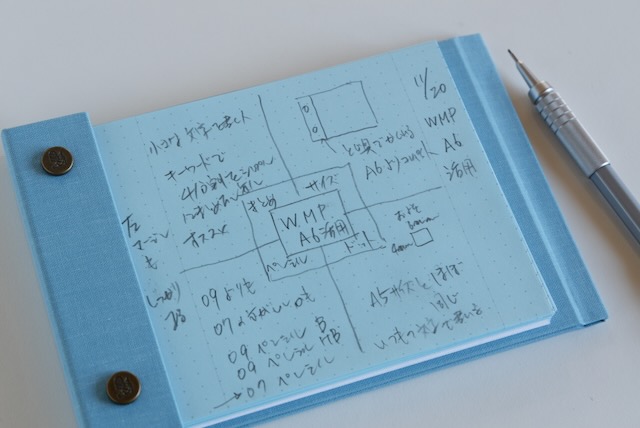 11/20
WMP
A6
活用
小さな文字で書く
キーワードで
オススメ
とじ具でかくれる
A6より
サイズ
まとめ
WMP
A6活用
ペンシル
ドット
およそ
5mm
4mm
左
マージン
も
しっかり
とる
09よりも
07の方がいいかも
09 ペンシル B
09 ペンシル HB
→07 ペンシル
A5サイズとほぼ
同じ
いつもの文字で書ける